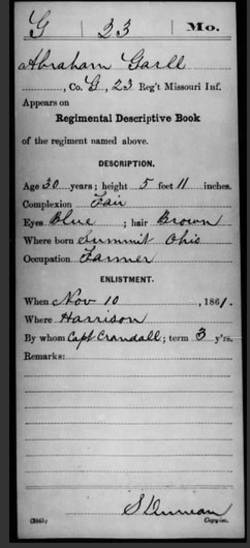 G 23 Mo.
Abraham Garll
, Co. G, 23 Reg't Missouri Inf.
Appears on
Regimental Descriptive Book
of the regiment named above.
DESCRIPTION.
Age 30 years; height 5 feet 11 inches.
Complexion Fair
Eyes Blue; hair Brown
Where born Summit Ohio
Occupation Farmer
ENLISTMENT.
When Nov 10, 1861.
Where Harrison
By whom Capt Crandall; term 3 y'rs.
Remarks:
S Duncan
Copyist.